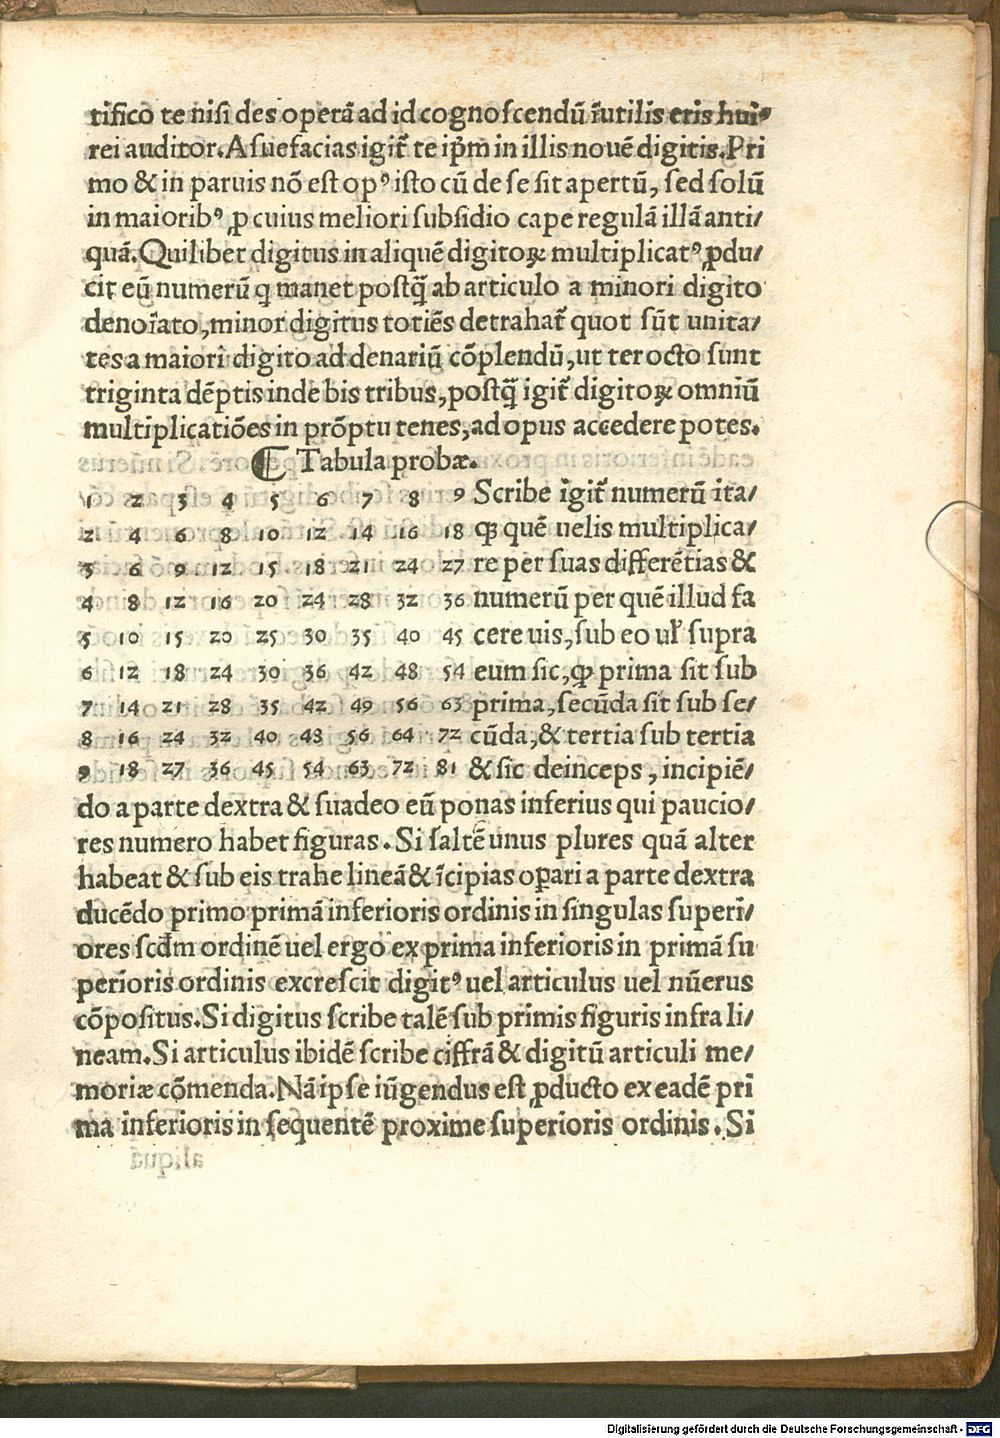 tifico te nisi des operā ad id cognoscendū īutilis eris hui⁹
rei auditor. Asuefacias igit̄ te ip̄m in illis nouē digitis. Pri
mo & in paruis nō est op⁹ isto cū de se sit apertū, sed solū
in maiorib⁹ ꝓ cuius meliori subsidio cape regulā illā anti/
quā. Quilibet digitus in aliquē digitoꝝ multiplicat⁹ ꝓdu/
cit eū numerū q manet postq̄ ab articulo a minori digito
denoīato, minor digitus totiēs detrahat̄ quot sūt unita/
tes a maiori digito ad denariū cōplendū, ut ter octo sunt
triginta dēptis inde bis tribus, postq̄ igit̄ digitoꝝ omniū
multiplicatiōes in prōptu tenes, ad opus accedere potes.
⸿ Tabula probæ.
1 2 3 4 5 6 7 8 9 Scribe igit̄ numerū ita/
2 4 6 8 10 12 14 16 18 ꝙ quē uelis multiplica/
3 6 9 12 15 18 21 24 27 re per suas differētias &
4 8 12 16 20 24 28 32 36 numerū per quē illud fa
5 10 15 20 25 30 35 40 45 cere uis, sub eo ul̄ supra
6 12 18 24 30 36 42 48 54 eum sic, ꝙ prima sit sub
7 14 21 28 35 42 49 56 63 prima, secūda sit sub se/
8 16 24 32 40 48 56 64 72 cūda, & tertia sub tertia
9 18 27 36 45 54 63 72 81 & sic deinceps, incipiē/
do a parte dextra & suadeo eū ponas inferius qui paucio/
res numero habet figuras. Si saltē unus plures quā alter
habeat & sub eis trahe lineā & īcipias oꝑari a parte dextra
ducēdo primo primā inferioris ordinis in singulas superi/
ores scd̄m ordinē uel ergo ex prima inferioris in primā su
perioris ordinis excrescit digit⁹ uel articulus uel nūerus
cōpositus. Si digitus scribe talē sub primis figuris infra li/
neam. Si articulus ibidē scribe ciffrā & digitū articuli me/
moriæ cōmenda. Nā ipse iūgendus est ꝓducto ex eadē pri
ma inferioris in sequentē proxime superioris ordinis. Si
Digitalisierung gefördert durch die Deutsche Forschungsgemeinschaft - DFG